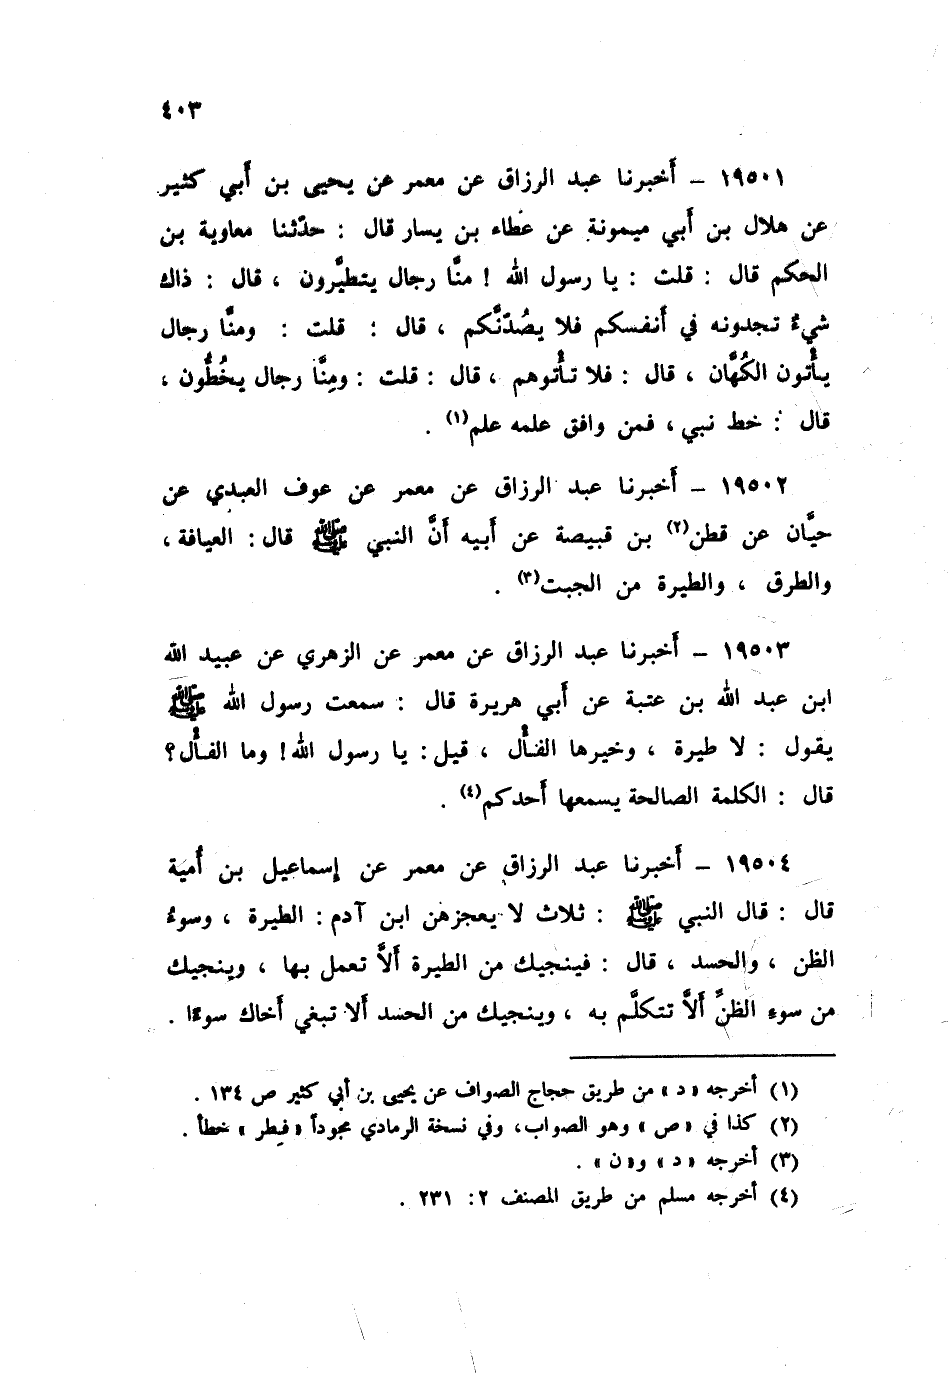 ٤٠٣
١٩٥٠١ – أَخبرنا عبد الرزاق عن معمر عن يحيى بن أَبي كثير
عن هلال بن أَبي ميمونة عن عطاء بن يسار قال : حدّثنا معاوية بن
الحكم قال : قلت : يا رسول الله ! منَّا رجال يتطيَّرون ، قال : ذاك
شيءٌ تجدونه في أَنفسكم فلا يصُدّنَّكم ، قال : قلت : ومنَّا رجال
يأْتون الكُهَّان ، قال : فلا تأْتوهم ، قال : قلت : ومِنَّا رجال يخُطُّون ،
قال : خط نبي ، فمن وافق علمه علم(١) .
١٩٥٠٢ – أَخبرنا عبد الرزاق عن معمر عن عوف العبدي عن
حيَّان عن قطن(٢) بن قبيصة عن أَبيه أَنَّ النبي ﷺ قال : العيافة ،
والطرق ، والطيرة من الجبت(٣) .
١٩٥٠٣ – أَخبرنا عبد الرزاق عن معمر عن الزهري عن عبيد الله
ابن عبد الله بن عتبة عن أَبي هريرة قال : سمعت رسول الله ﷺ
يقول : لا طيرة ، وخيرها الفأْل ، قيل : يا رسول الله ! وما الفأْل ؟
قال : الكلمة الصالحة يسمعها أَحدكم(٤) .
١٩٥٠٤ – أَخبرنا عبد الرزاق عن معمر عن إسماعيل بن أُمية
قال : قال النبي ﷺ : ثلاث لا يعجزهن ابن آدم : الطيرة ، وسوءُ
الظن ، والحسد ، قال : فينجيك من الطيرة أَلاَّ تعمل بها ، وينجيك
من سوءِ الظنِّ أَلاَّ تتكلَّم به ، وينجيك من الحسد أَلا تبغي أَخاك سوءًا .
(١) أخرجه « د » من طريق حجاج الصواف عن يحيى بن أبي كثير ص ١٣٤ .
(٢) كذا في « ص » وهو الصواب، وفي نسخة الرمادي مجوداً « فطر » خطأ .
(٣) أخرجه « د » و« ن » .
(٤) أخرجه مسلم من طريق المصنف ٢ : ٢٣١ .